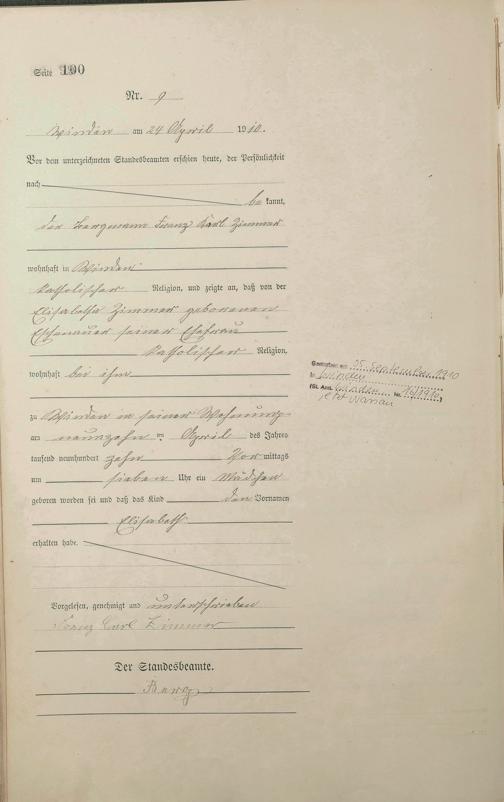 Seite 100
Nr. 9
Winden am 24 April 1910.
Vor dem unterzeichneten Standesbeamten erschien heute, der Persönlichkeit
nach
be kannt,
der Bergmann Franz Karl Zimmer
wohnhaft in Winden
katholischer Religion, und zeigte an, daß von der
Elisabetha Zimmer geborenen
Eschenauer seiner Ehefrau
katholischer Religion,
wohnhaft bei ihm
zu Winden in seiner Wohnung
am neunzehn ten April des Jahres
tausend neunhundert zehn Vor mittags
um sieben Uhr ein Mädchen
geboren worden sei und daß das Kind den Vornamen
Elisabeth
erhalten habe.
Vorgelesen, genehmigt und unterschrieben
Franz Carl Zimmer
Der Standesbeamte.
Gestorben am 25. September 1910
in Winden
(St. Amt Winden Nr. /1910)
jetzt Nassau